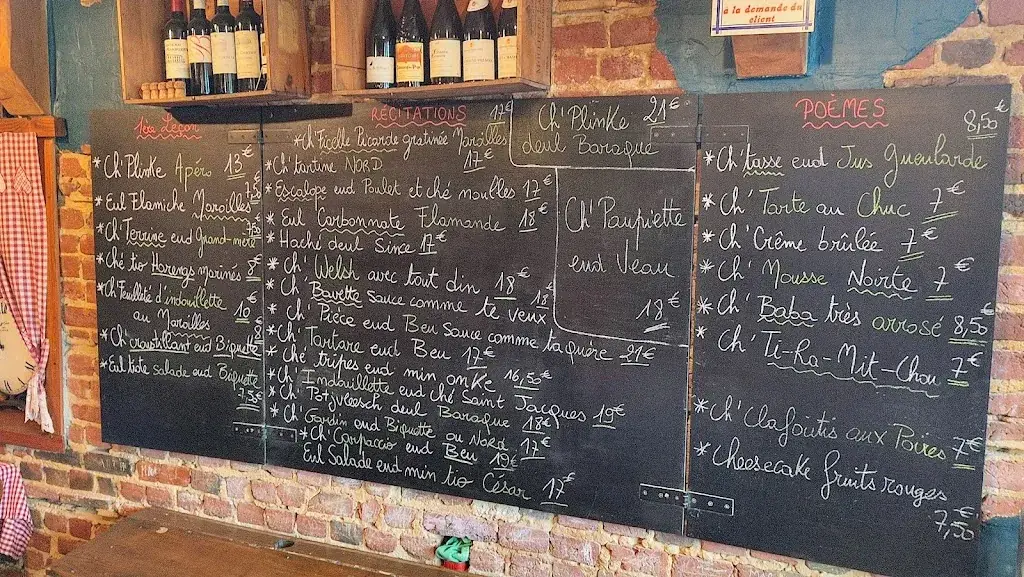 a la demande du
client
1ère Leçon
* Ch'Plinke Apéro 13€
* Eul Flamiche Maroilles 7,50
* Ch'Terrine eud Grand-mère 7,50
* Ché tio Harengs marinés 8€
* Ch'Feuilleté d'andouillette
au Maroilles 10€
* Ch'croustillant eud Biquette 8€
* Eul tiote salade eud Biquette
7,5€
RÉCITATIONS
* Ch'Ficelle Picarde gratinée Maroilles 17€
* Ch'tartine NORD 17€
* Escalope eud Poulet et ché noulles 17€
* Eul Carbonnate Flamande 18€
* Haché deul Since 17€
* Ch'Welsh avec tout din 18€
* Ch'Bavette sauce comme te veux 18€
* Ch'Pièce eud Beu sauce comme ta quère 21€
* Ch'Tartare eud Beu 17€
* Ché tripes eud min onke 16,50€
* Ch'Indouillette eud ché Saint Jacques 19€
* Ch'Potjveesch deul Baraque 18€
* Ch'Gardin eud Biquette ou Nord 17€
* Ch'Carpaccio eud Beu 19€
Eul Salade eud min tio César 17€
Ch'Plinke 21€
deul Baraque
Ch'Paupiette
eud Veau
18€
POÈMES
* Ch'tasse eud Jus Gueularde 8,50€
* Ch'Tarte au Chuc 7€
* Ch'Crème brûlée 7€
* Ch'Mousse Noirte 7€
* Ch'Baba très arrosé 8,50€
* Ch'Ti-Ra-Mit-Chou 7€
* Ch'Clafoutis aux Poires 7€
* Cheesecake fruits rouges
7,50€